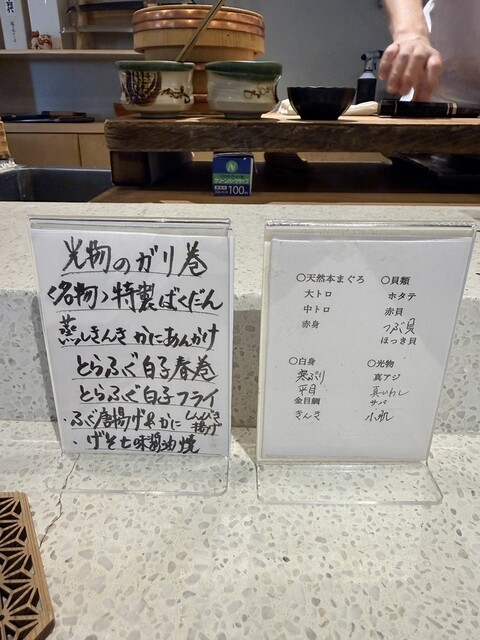 光物のガリ巻
〈名物〉特製ばくだん
蒸しきんき かにあんかけ
とらふぐ白子春巻
とらふぐ白子フライ
・ふぐ唐揚げ
・げそ七味醤油焼
○天然本まぐろ
大トロ
中トロ
赤身
○貝類
ホタテ
赤貝
つぶ貝
ほっき貝
○白身
寒ぶり
平目
金目鯛
きんき
○光物
真アジ
真いわし
サバ
小肌
100m